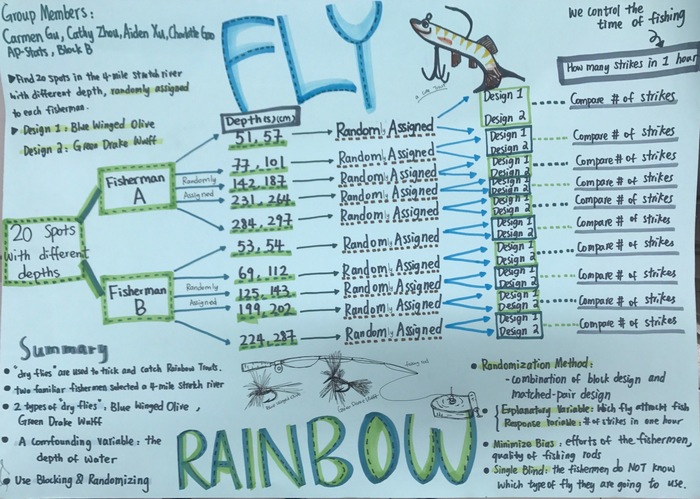 Group Members:
Carmen Gu, Cathy Zhou, Aiden Xu, Charlotte Gao
AP-Stats, Block B
FLY
We control the
time of fishing
How many strikes in 1 hour
Find 20 spots in the 4-mile stretch river
with different depth, randomly assigned
to each fisherman.
Design 1: Blue Winged Olive
Design 2: Green Drake Wulff
20 Spots
with different
depths
Fisherman
A
Randomly
Assigned
Fisherman
B
Randomly
Assigned
Depths(cm)
51, 57
Randomly Assigned
Design 1
Design 2
Compare # of strikes
77, 101
Randomly Assigned
Design 1
Design 2
Compare # of strikes
142, 187
Randomly Assigned
Design 1
Design 2
Compare # of strikes
231, 264
Randomly Assigned
Design 1
Design 2
Compare # of strikes
284, 297
Randomly Assigned
Design 1
Design 2
Compare # of strikes
53, 54
Randomly Assigned
Design 1
Design 2
Compare # of strikes
69, 112
Randomly Assigned
Design 1
Design 2
Compare # of strikes
125, 143
Randomly Assigned
Design 1
Design 2
Compare # of strikes
199, 202
Randomly Assigned
Design 1
Design 2
Compare # of strikes
224, 287
Randomly Assigned
Design 1
Design 2
Compare # of strikes
Summary
"dry flies" are used to trick and catch Rainbow Trouts.
two familiar fishermen selected a 4-mile stretch river
2 types of "dry flies": Blue Winged Olive,
Green Drake Wulff
A Comfounding Variable: the
depth of Water
Use Blocking & Randomizing
fishing rod
Blue Winged Olive
Green Drake Wulff
RAINBOW
Randomization Method:
- combination of block design and
matched-pair design
Explanatory Variable: Which fly attract fish
Response Variable: # of strikes in one hour
Minimize Bias: efforts of the fishermen,
quality of fishing rods
Single Blind: the fishermen do NOT know
which type of fly they are going to use.